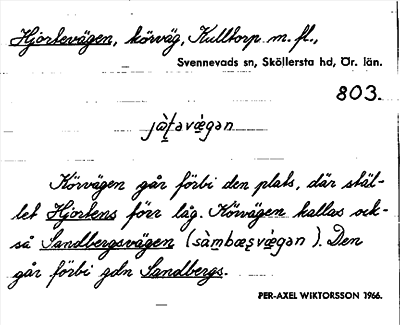 Hjortevägen, körväg, Kulltorp m. fl.,
Svennevads sn, Sköllersta hd, Ör. län.
803.
jà̱ʈəvæ̀gən
Körvägen går förbi den plats, där stäl-
let Hjortens förr låg. Körvägen kallas ock-
så Sandbergsvägen (sàmbæʂvæ̀gən). Den
går förbi gdn Sandbergs.
PER-AXEL WIKTORSSON 1966.